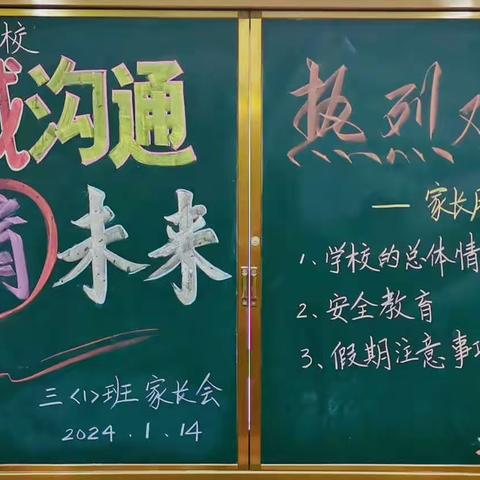 校
诚沟通
育未来
三<1>班家长会
2024.1.14
热烈欢
—家长朋
1、学校的总体情
2、安全教育
3、假期注意事项